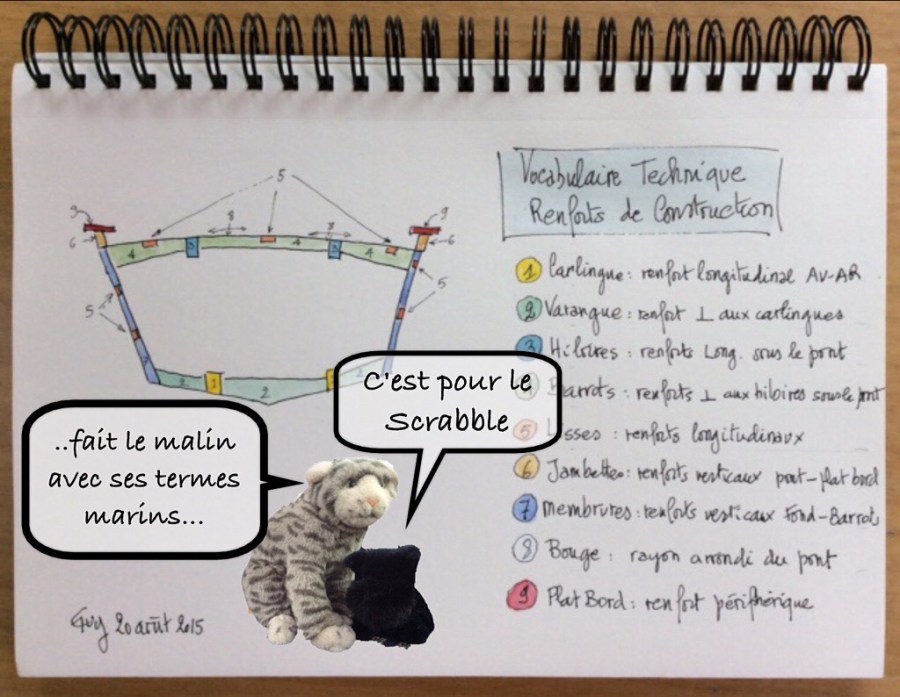 Vocabulaire Technique
Renforts de Construction
1 Carlingue : renfort longitudinal AV-AR
2 Varangue : renfort ⊥ aux carlingues
3 Hiloires : renforts Long. sous le pont
4 Barrots : renforts ⊥ aux hiloires sous le pont
5 Lisses : renforts longitudinaux
6 Jambettes : renforts verticaux pont-plat bord
7 Membrures : renforts verticaux Fond-Barrots
8 Bouge : rayon arrondi du pont
9 Plat Bord : renfort périphérique
5
9
8
8
9
6
4
3
4
3
4
6
5
5
7
2
1
2
2
C'est pour le
Scrabble
..fait le malin
avec ses termes
marins...
Guy 20 août 2015